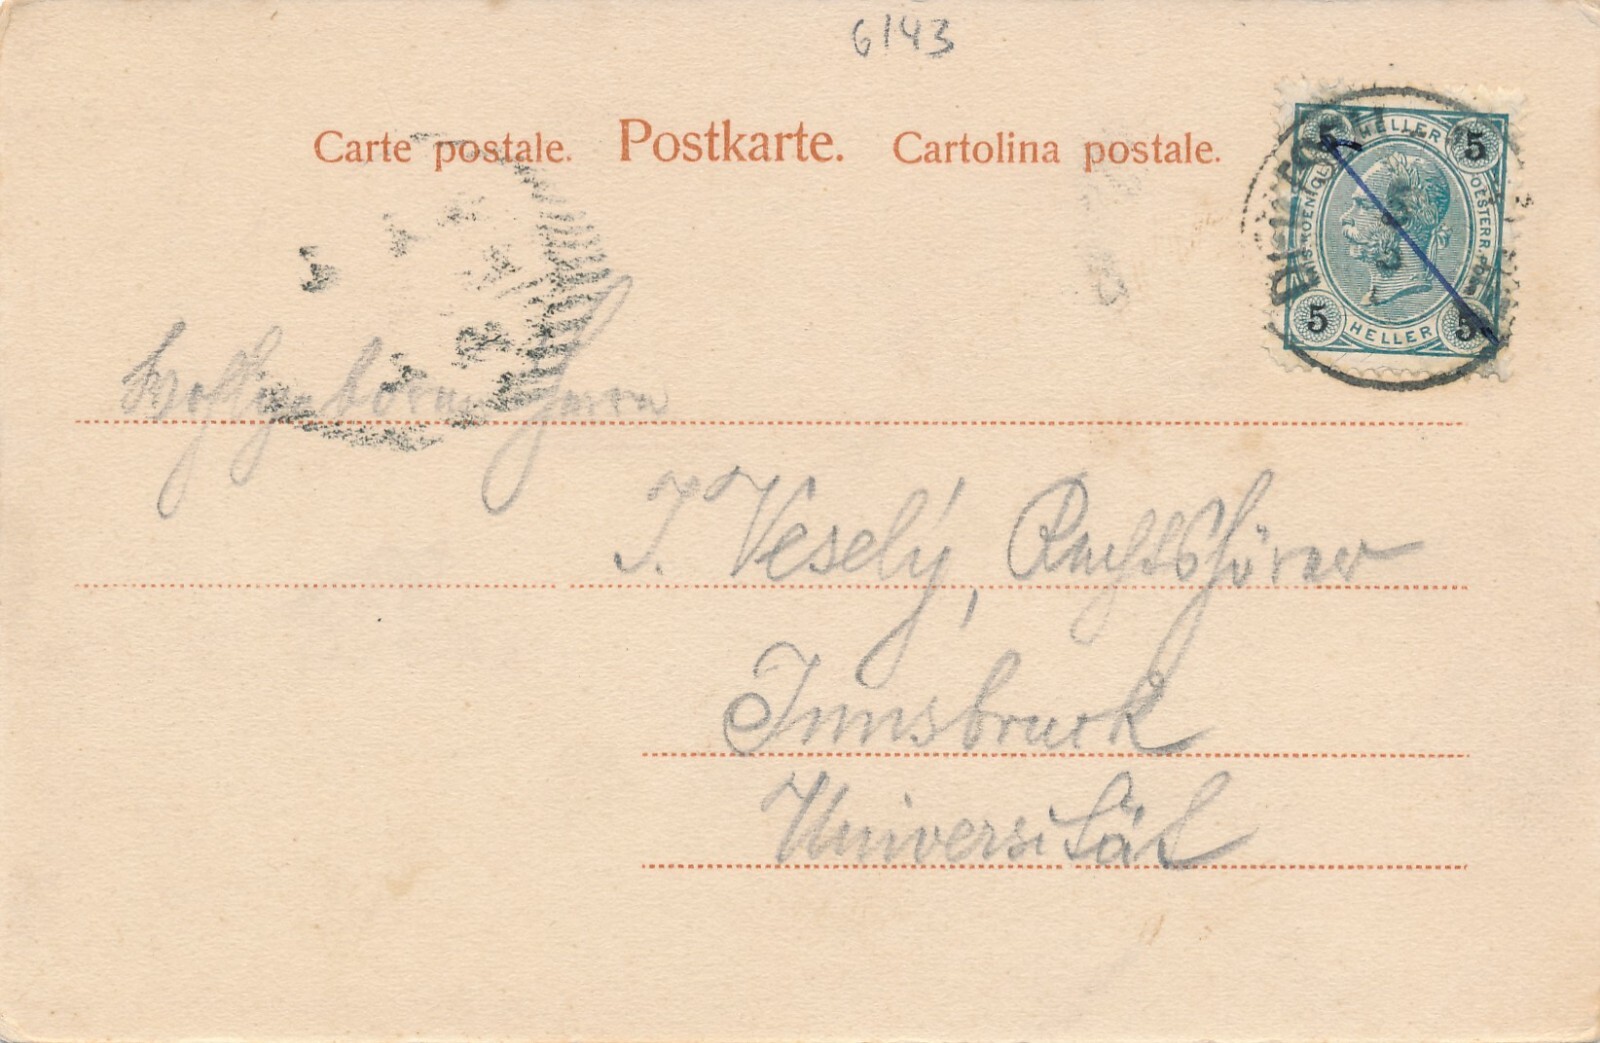 6143
Carte postale. Postkarte. Cartolina postale.
5 HELLER 5
OESTERR. POST
5 HELLER 5
Wohlgeboren Herrn
J. Veselý, Rechtshörer
Innsbruck
Universität